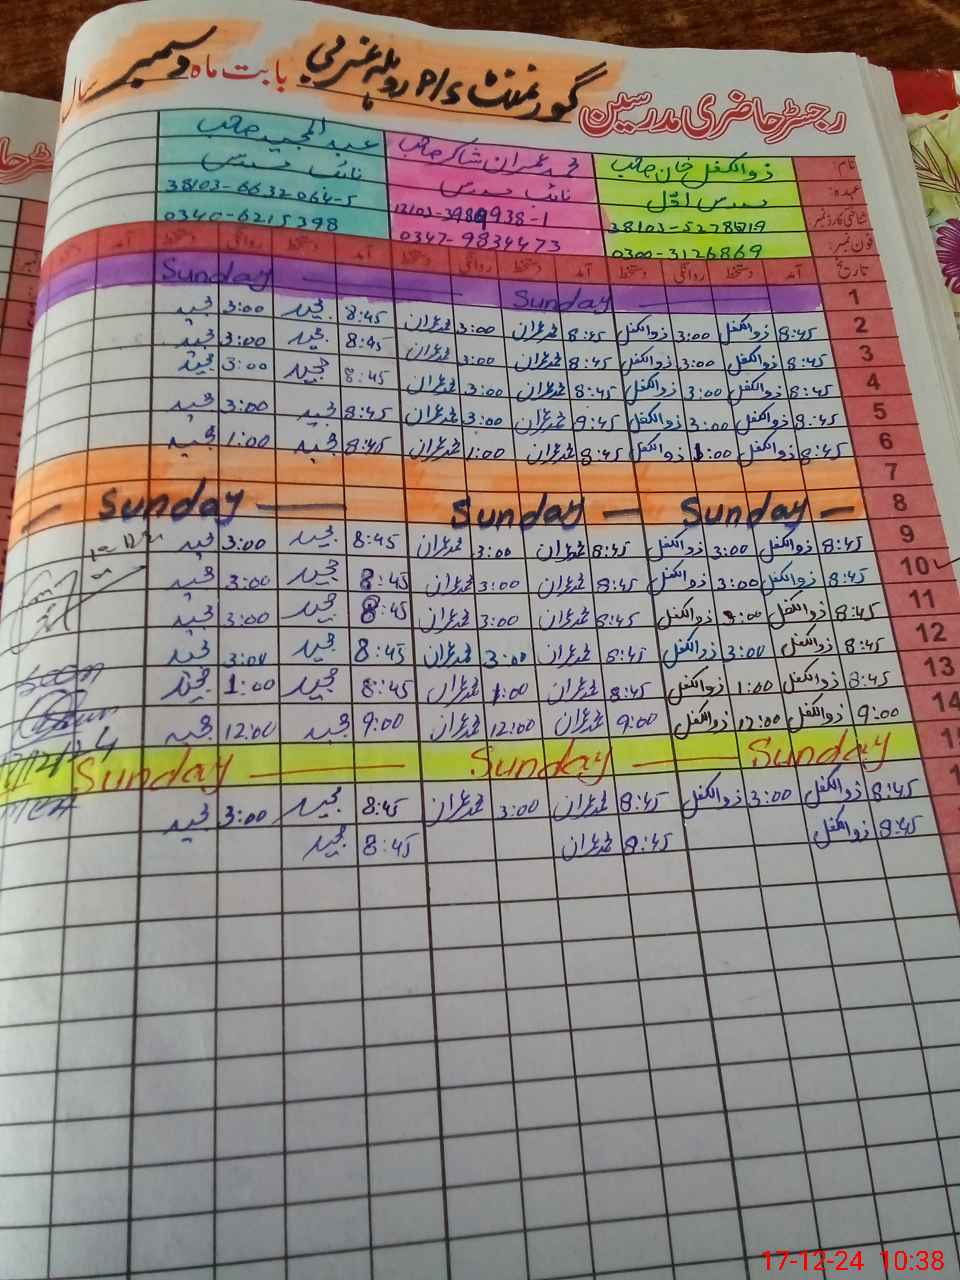 رجسٹر حاضری مدرسین گورنمنٹ P/s روہیلہ غربی بابت ماہ دسمبر سال
نام ذوالکفل خان صاحب محمد عمران شاکر صاحب عبدالمجید صاحب
عہدہ: مدرس اول نائب مدرس نائب مدرس
شناختی کارڈ نمبر 12103-3989938-1 38103-6632064-5
فون نمبر: 0300-3126869 0347-9834473 0340-6215398
تاریخ آمد دستخط روانگی دستخط آمد دستخط روانگی دستخط آمد دستخط روانگی دستخط آمد
1 Sunday Sunday
2 8:45 ذوالکفل 3:00 ذوالکفل 8:45 محمد عمران 3:00 محمد عمران 8:45 مجید 3:00 مجید
3 8:45 ذوالکفل 3:00 ذوالکفل 8:45 محمد عمران 3:00 محمد عمران 8:45 مجید 3:00 مجید
4 8:45 ذوالکفل 3:00 ذوالکفل 8:45 محمد عمران 3:00 محمد عمران 8:45 مجید 3:00 مجید
5 8:45 ذوالکفل 3:00 ذوالکفل 8:45 محمد عمران 3:00 محمد عمران 8:45 مجید 3:00 مجید
6 8:45 ذوالکفل 1:00 ذوالکفل 8:45 محمد عمران 1:00 محمد عمران 8:45 مجید 1:00 مجید
7
8 Sunday Sunday Sunday
9 8:45 ذوالکفل 3:00 ذوالکفل 8:45 محمد عمران 3:00 محمد عمران 8:45 مجید 3:00 مجید
10 8:45 ذوالکفل 3:00 ذوالکفل 8:45 محمد عمران 3:00 محمد عمران 8:45 مجید 3:00 مجید
11 8:45 ذوالکفل 3:00 ذوالکفل 8:45 محمد عمران 3:00 محمد عمران 8:45 مجید 3:00 مجید
12 8:45 ذوالکفل 3:00 ذوالکفل 8:45 محمد عمران 3:00 محمد عمران 8:45 مجید 3:00 مجید
13 8:45 ذوالکفل 1:00 ذوالکفل 8:45 محمد عمران 1:00 محمد عمران 8:45 مجید 1:00 مجید
14 9:00 ذوالکفل 12:00 ذوالکفل 9:00 محمد عمران 12:00 محمد عمران 9:00 مجید 12:00 مجید
Sunday Sunday Sunday
8:45 ذوالکفل 3:00 ذوالکفل 8:45 محمد عمران 3:00 محمد عمران 8:45 مجید 3:00 مجید
8:45 ذوالکفل 8:45 محمد عمران 8:45 مجید
17-12-24 10:38